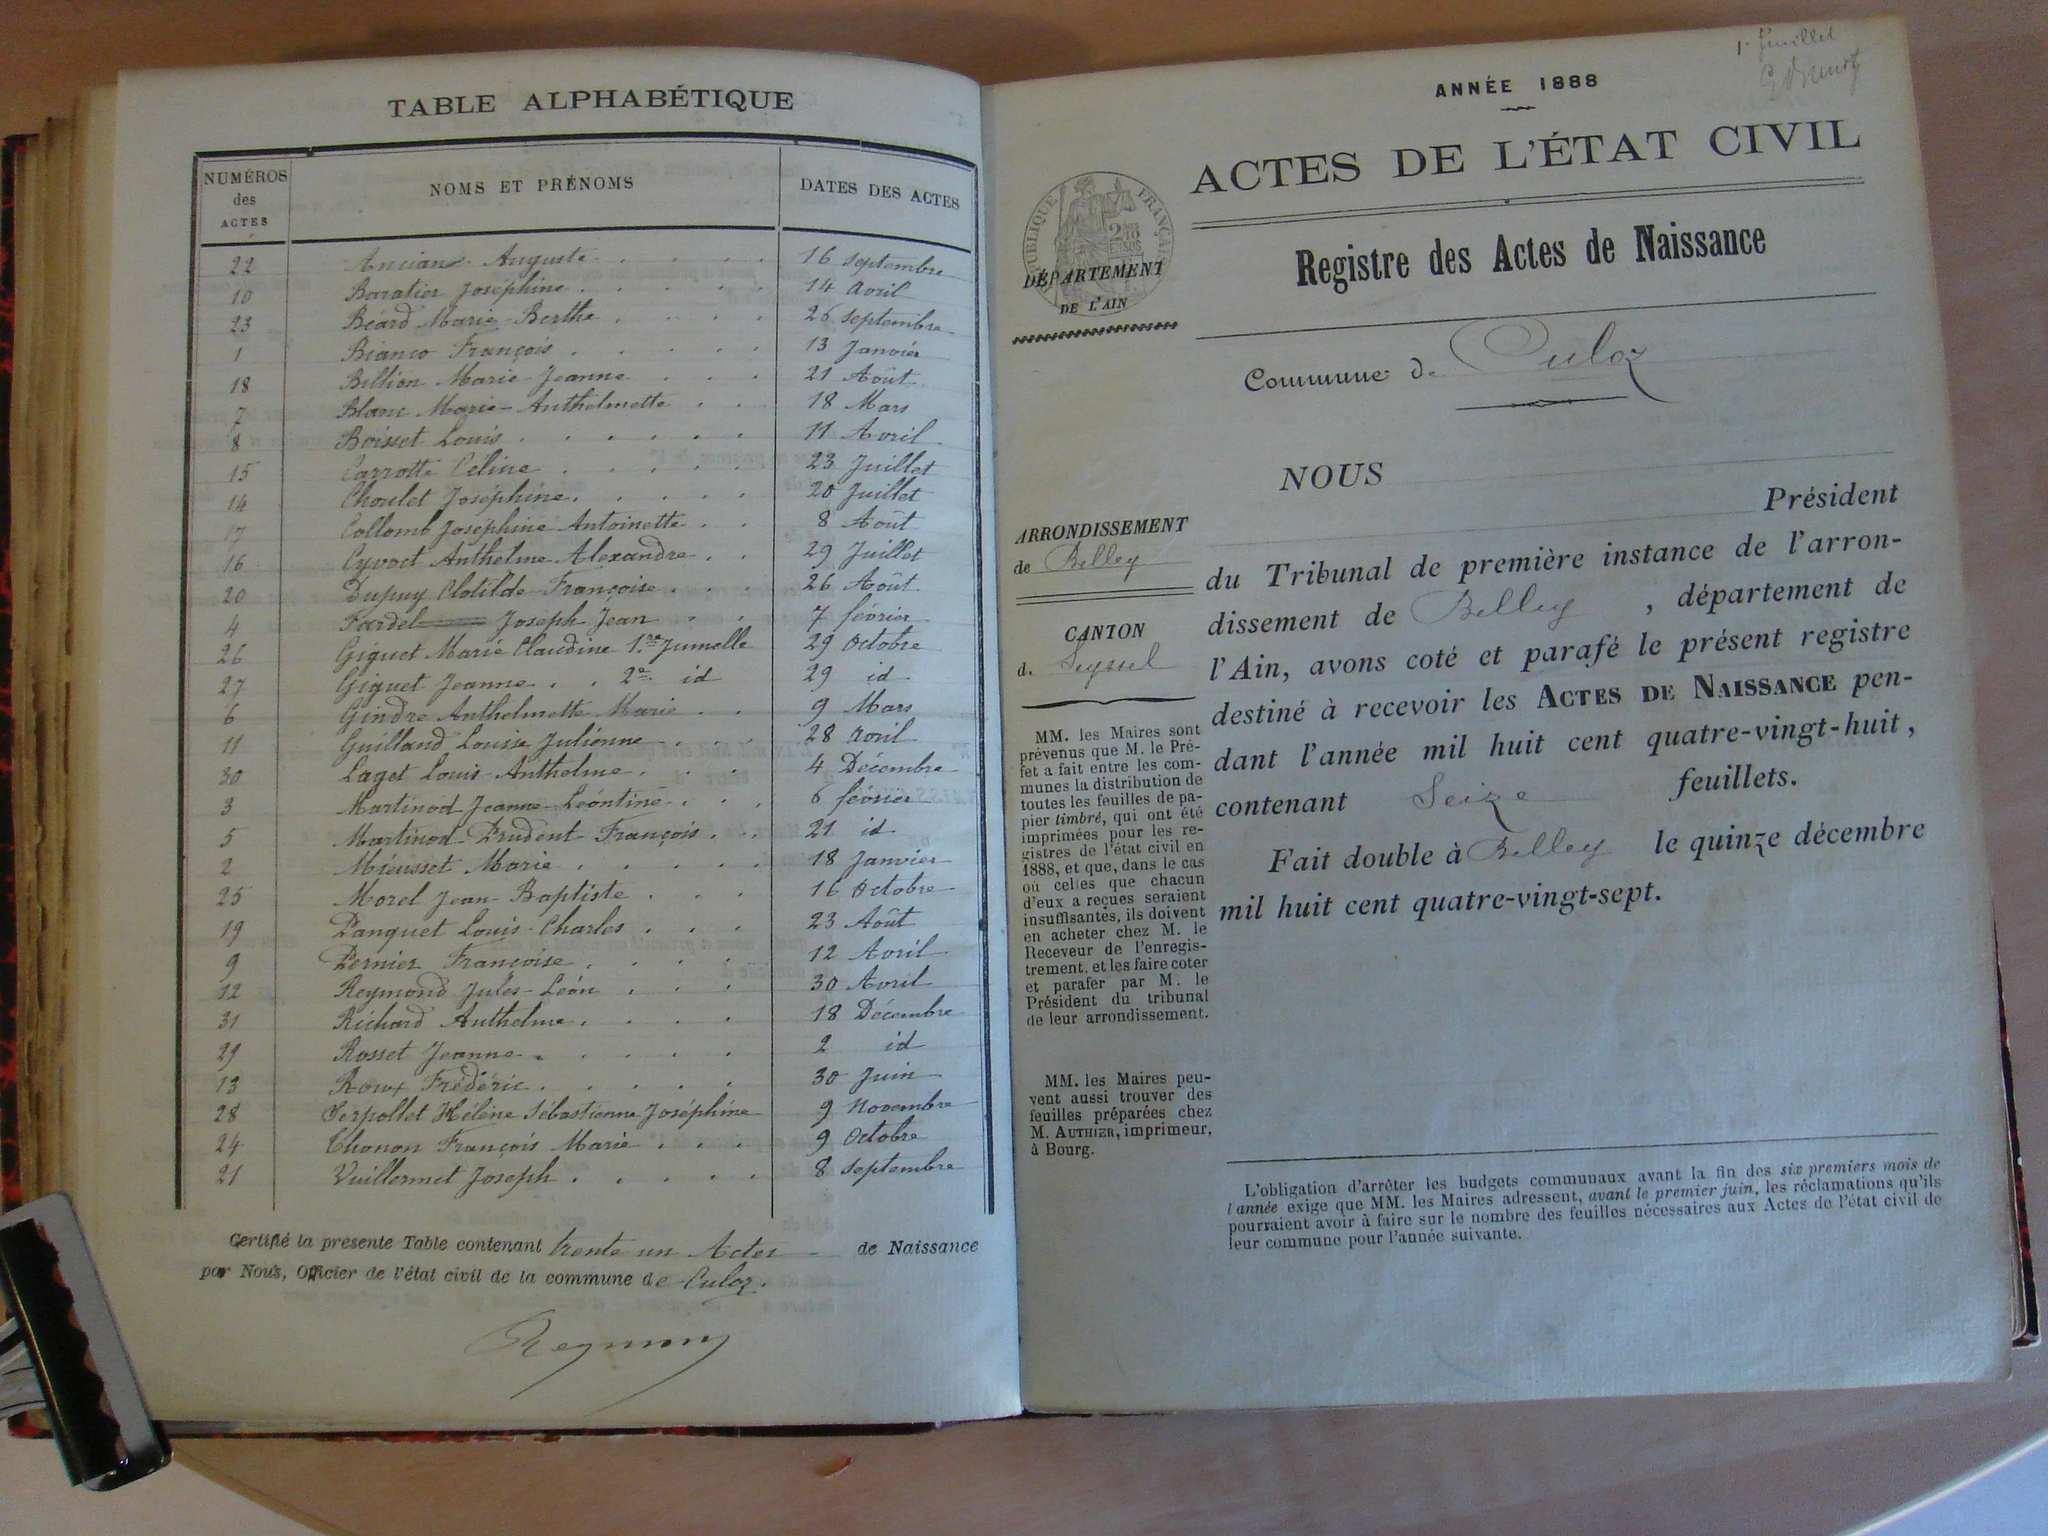 TABLE ALPHABÉTIQUE
NUMÉROS des ACTES NOMS ET PRÉNOMS DATES DES ACTES
22 Ancian Auguste 16 septembre
10 Baratier Joséphine 14 Avril
23 Béard Marie-Berthe 26 septembre
1 Bianco François 13 Janvier
18 Billion Marie-Jeanne 21 Août
7 Blanc Marie-Anthelmette 18 Mars
8 Boisset Louis 11 Avril
15 Carrotte Céline 23 Juillet
14 Choulet Joséphine 20 Juillet
17 Collomb Joséphine Antoinette 8 Août
16 Cyvoct Anthelme Alexandre 29 Juillet
20 Dupuy Clotilde Françoise 26 Août
4 Fardel Joseph Jean 7 février
26 Giguet Marie Claudine 1.re Jumelle 29 Octobre
27 Giguet Jeanne 2e id 29 id
6 Gindre Anthelmette Marie 9 Mars
11 Guilland Louise Julienne 28 Avril
30 Laget Louis Anthelme 4 Décembre
3 Martinod Jeanne-Léontine 6 février
5 Martinod Prudent François 21 id
2 Mieusset Marie 18 Janvier
25 Morel Jean-Baptiste 16 Octobre
19 Panquet Louis-Charles 23 Août
9 Pernier Françoise 12 Avril
12 Reymond Jules-Léon 30 Avril
31 Richard Anthelme 18 Décembre
29 Rosset Jeanne 2 id
13 Roux Frédéric 30 Juin
28 Serpollet Hélène Sébastienne Joséphine 9 Novembre
24 Thonon François Marie 9 Octobre
21 Vuillermet Joseph 8 septembre
Certifié la présente Table contenant trente un Actes de Naissance
par Nous, Officier de l'état civil de la commune de Culoz.
1er feuillet
ANNÉE 1888
ACTES DE L'ÉTAT CIVIL
RÉPUBLIQUE FRANÇAISE
DÉPARTEMENT
DE L'AIN
Registre des Actes de Naissance
Commune de Culoz
ARRONDISSEMENT
de Belley
CANTON
d. Seyssel
MM. les Maires sont
prévenus que M. le Pré-
fet a fait entre les com-
munes la distribution de
toutes les feuilles de pa-
pier timbré, qui ont été
imprimées pour les re-
gistres de l'état civil en
1888, et que, dans le cas
où celles que chacun
d'eux a reçues seraient
insuffisantes, ils doivent
en acheter chez M. le
Receveur de l'enregis-
trement, et les faire coter
et parafer par M. le
Président du tribunal
de leur arrondissement.
MM. les Maires peu-
vent aussi trouver des
feuilles préparées chez
M. AUTHIER, imprimeur,
à Bourg.
NOUS
Président
du Tribunal de première instance de l'arron-
dissement de Belley, département de
l'Ain, avons coté et parafé le présent registre
destiné à recevoir les ACTES DE NAISSANCE pen-
dant l'année mil huit cent quatre-vingt-huit,
contenant Seize feuillets.
Fait double à Belley le quinze décembre
mil huit cent quatre-vingt-sept.
L'obligation d'arrêter les budgets communaux avant la fin des six premiers mois de
l'année exige que MM. les Maires adressent, avant le premier juin, les réclamations qu'ils
pourraient avoir à faire sur le nombre des feuilles nécessaires aux Actes de l'état civil de
leur commune pour l'année suivante.